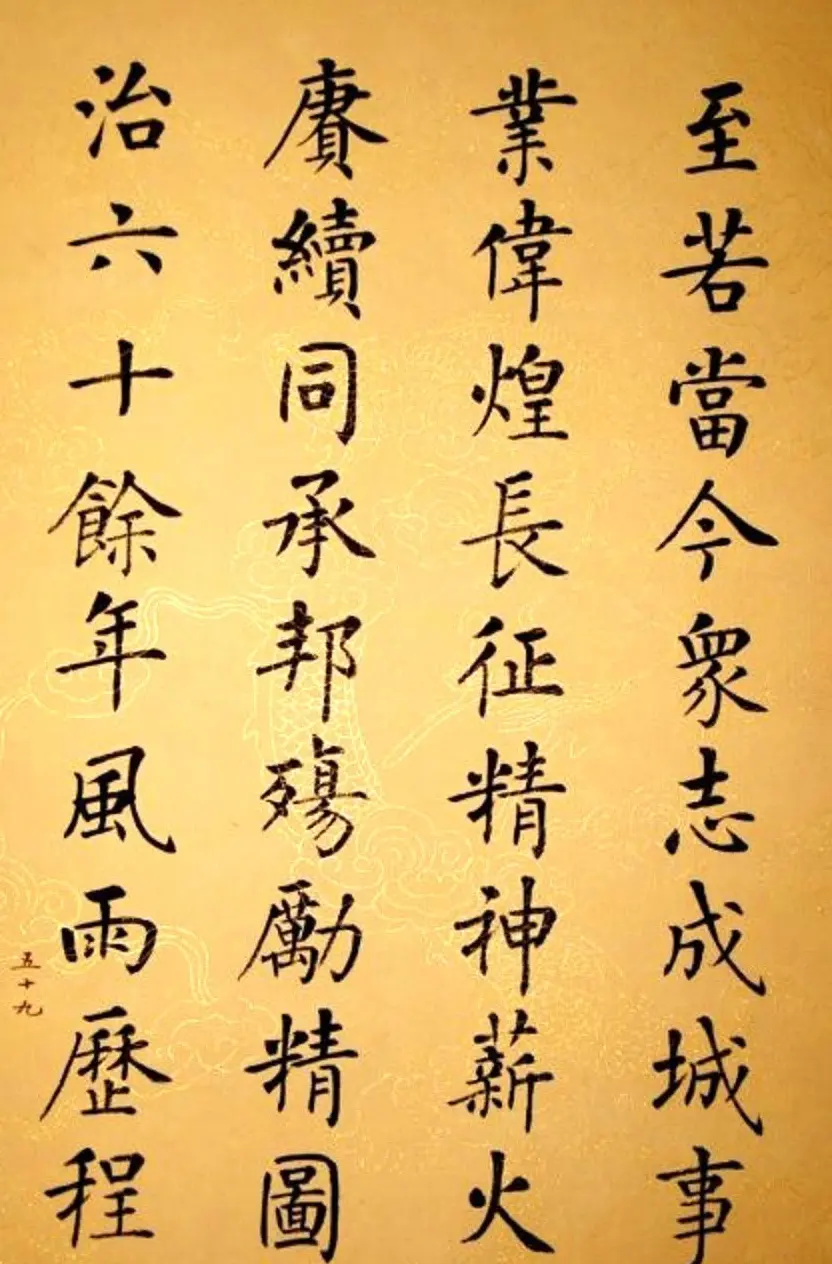 至若當今衆志成城事
業偉煌長征精神薪火
賡續同承邦殤勵精圖
治六十餘年風雨歷程
五十九